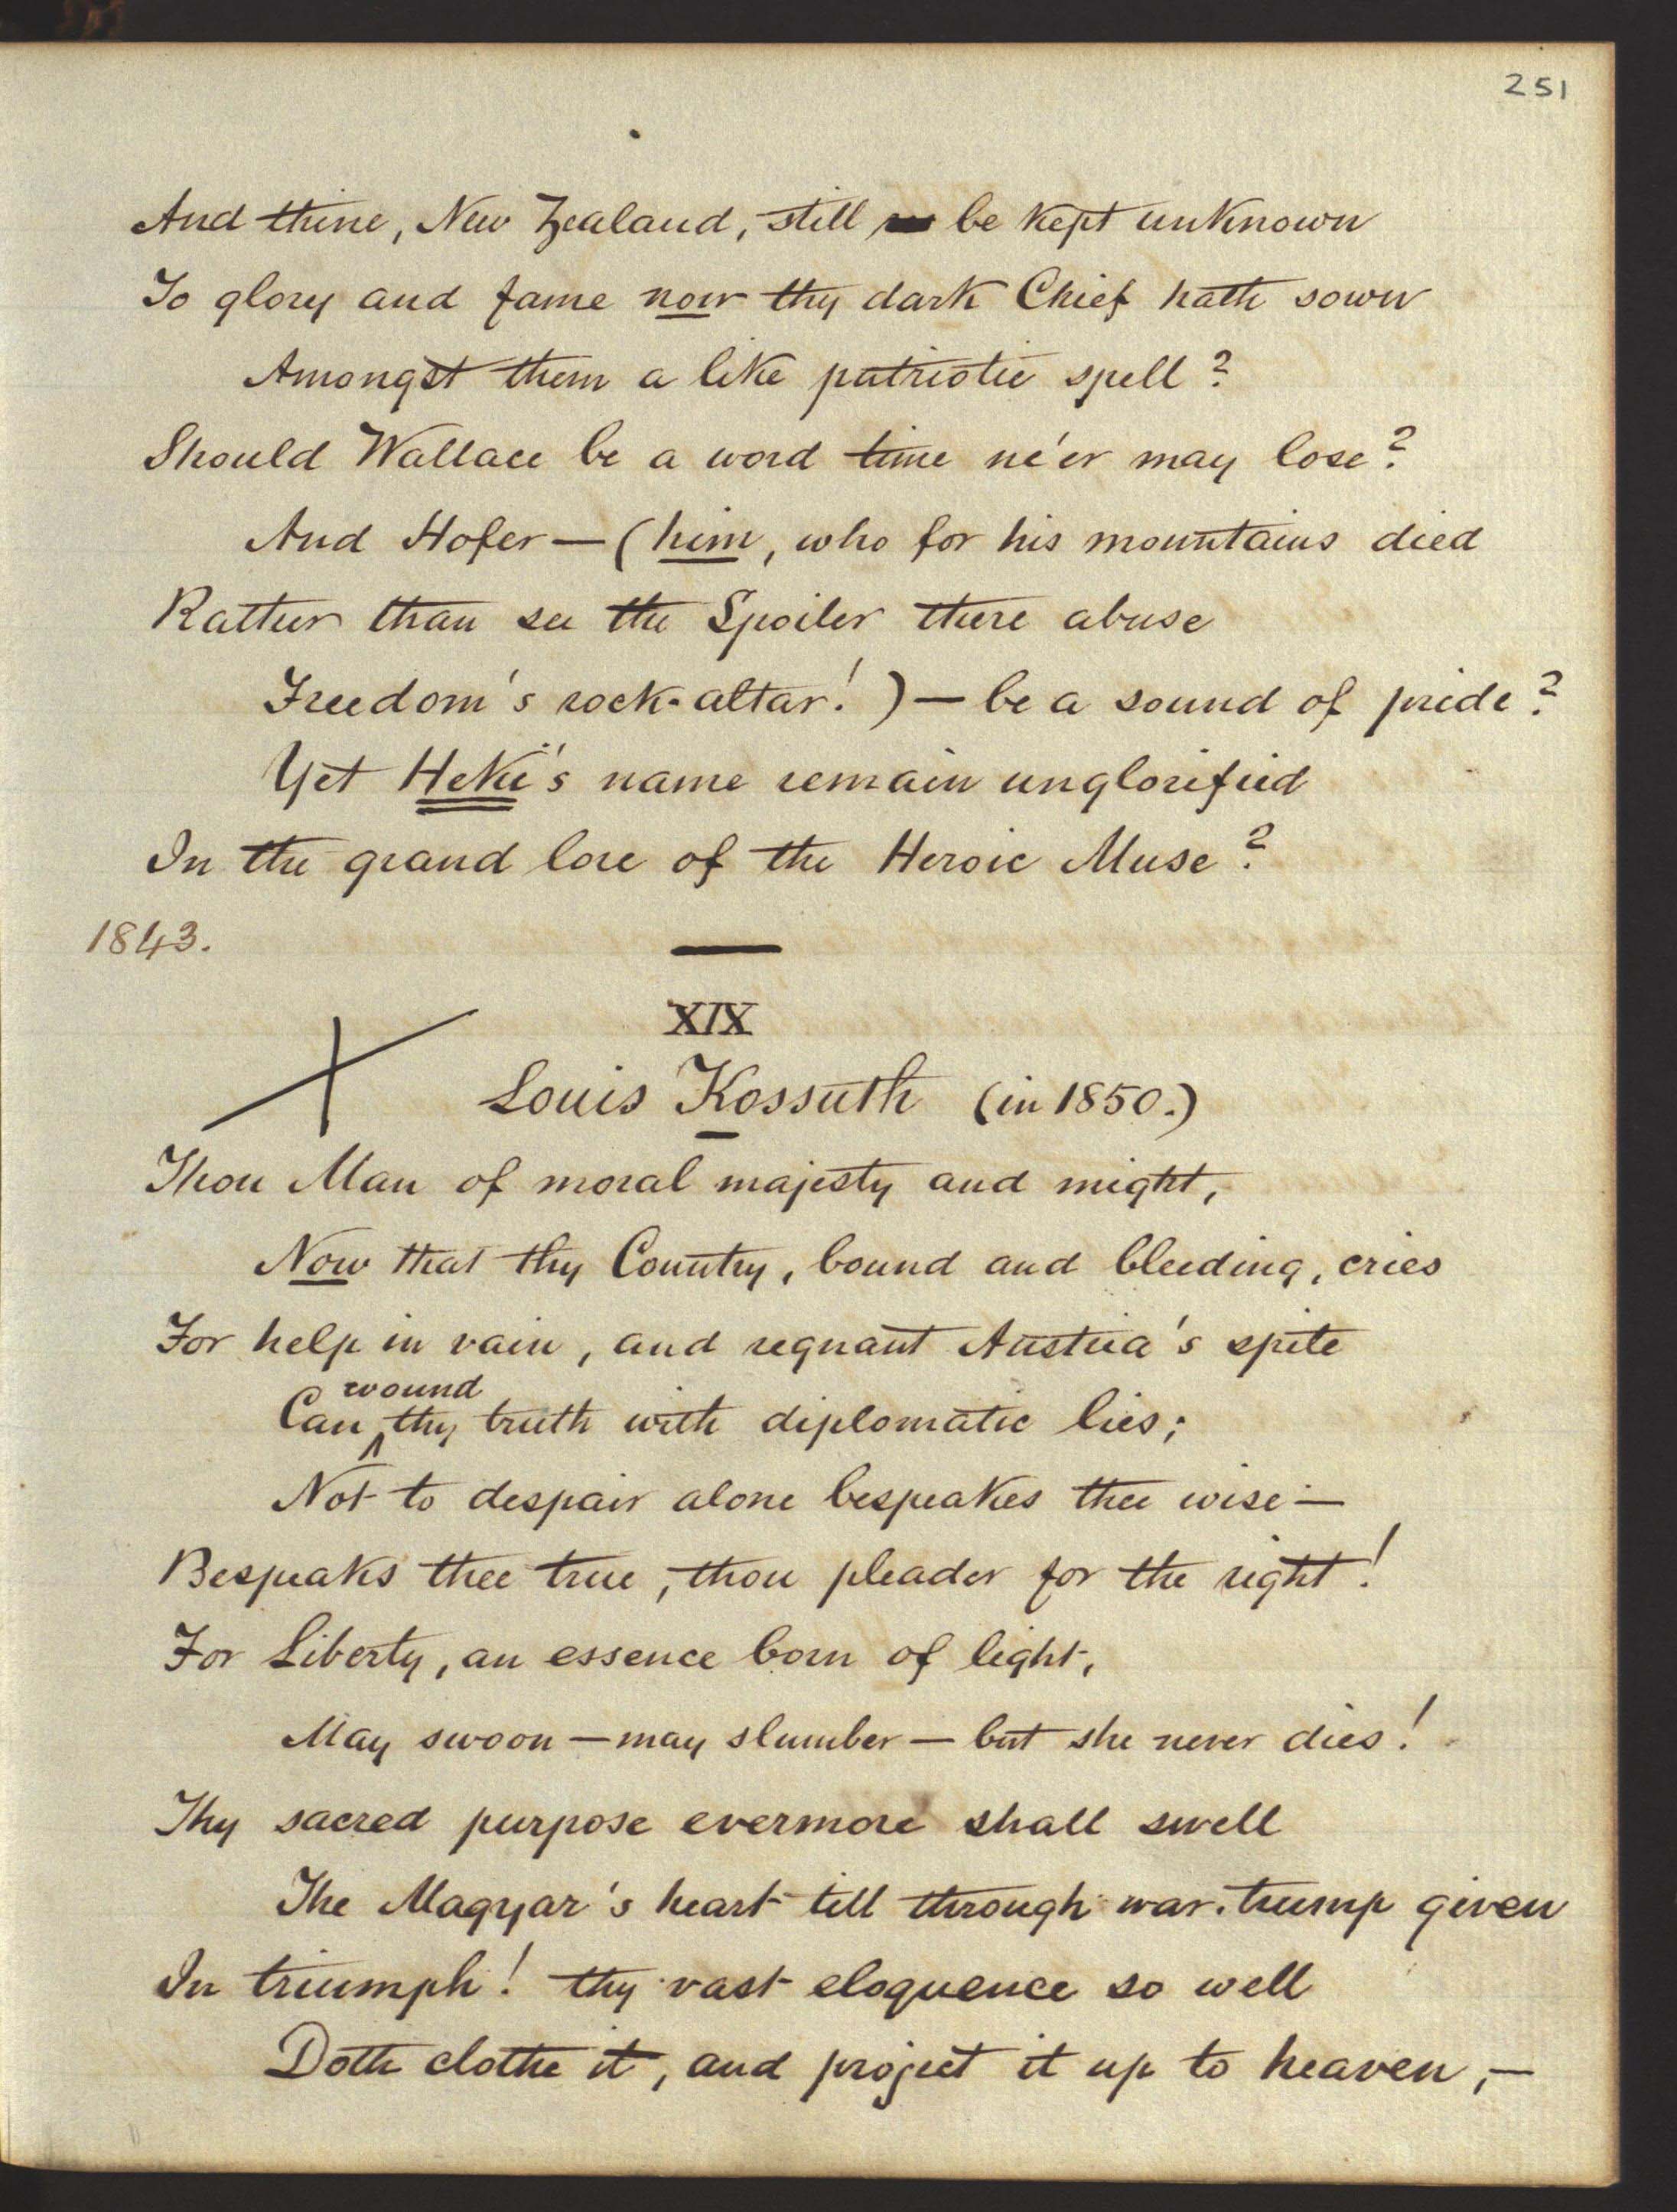 251
And thine, New Zealand, still be kept unknown
To glory and fame now thy dark Chief hath sown
Amongst them a like patriotic spell?
Should Wallace be a word time ne'er may lose?
And Hofer — (him, who for his mountains died
Rather than see the Spoiler there abuse
Freedom's rock-altar!) — be a sound of pride?
Yet Heki's name remain unglorified
In the grand lore of the Heroic Muse?
1843.
XIX
Louis Kossuth (in 1850.)
Thou Man of moral majesty and might,
Now that thy Country, bound and bleeding, cries
For help in vain, and regnant Austria's spite
Can wound thy truth with diplomatic lies;
Not to despair alone bespeakes thee wise —
Bespeaks thee true, thou pleader for the right!
For Liberty, an essence born of light,
May swoon — may slumber — but she never dies!
Thy sacred purpose evermore shall swell
The Magyar's heart till through war-trump given
In triumph! thy vast eloquence so well
Doth clothe it, and project it up to heaven, —